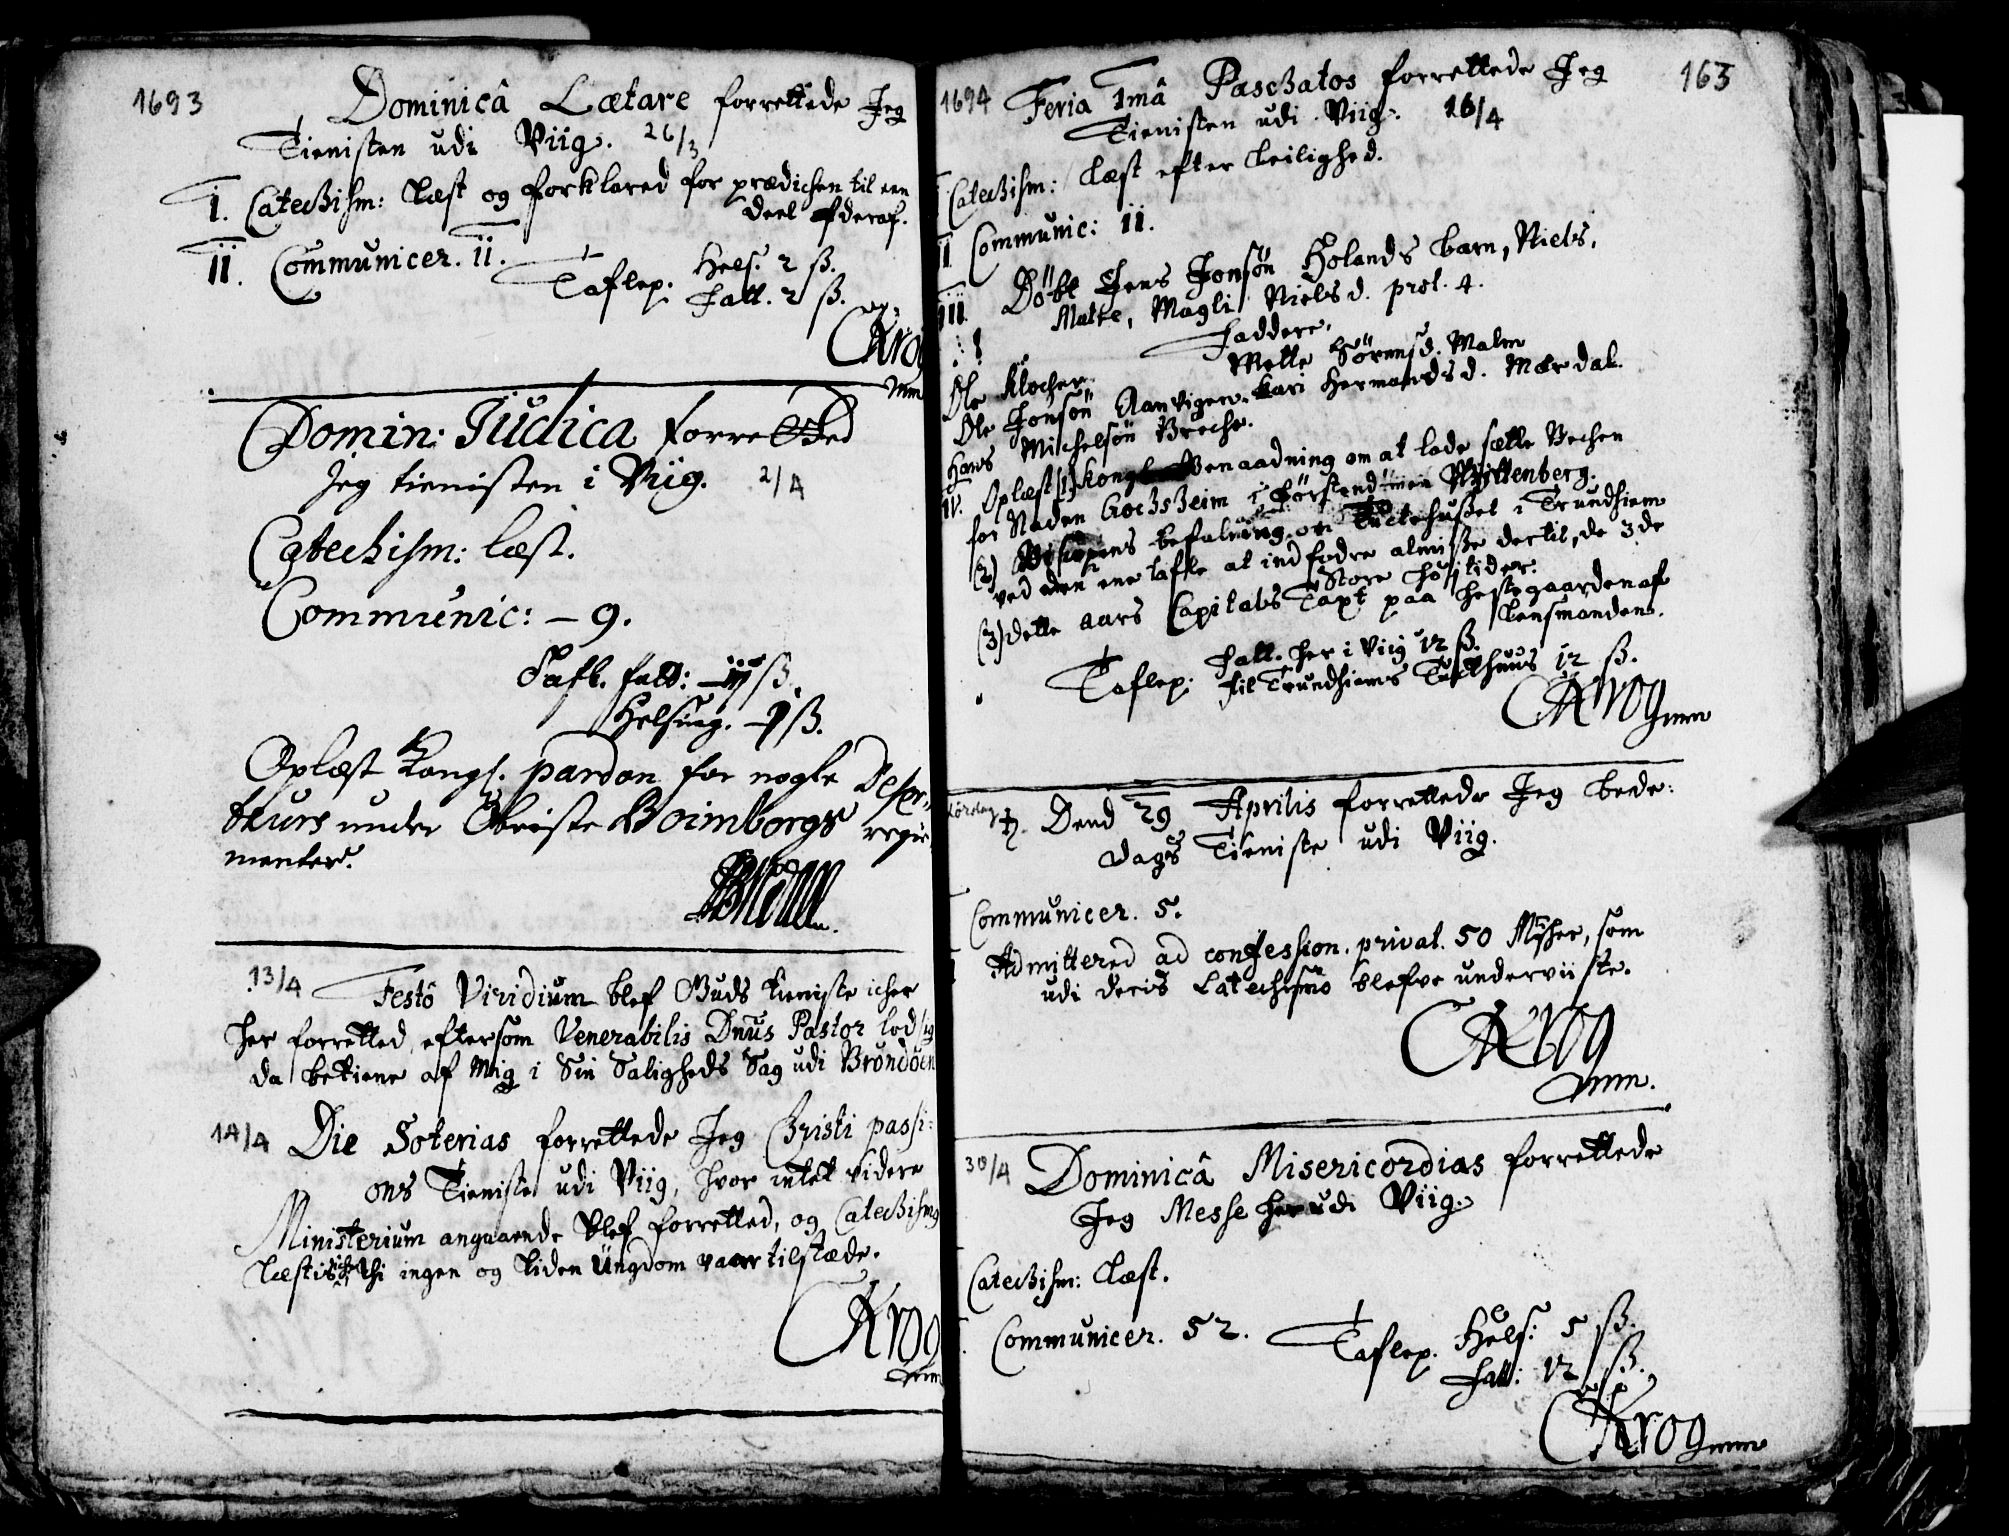 1693
Dominicâ Lætare forrettede Jeg
Tienisten udi Viig. 26/3
I. Catechism: Læst og forklared for prædichen til een
deel af deraf.
II. Communicer. 11.
Taflep. Hels: 2 ß.
fatt. 2 ß.
CKrog
mm
Domin: Judica forretted
Jeg tienisten i Viig. 2/4
Catechism: læst.
Communic: – 9.
Tafl. fatt: – ß.
Helsing. – ß.
Oplæst Kongl. pardon for nogle Deser-
teurs under Obriste Boimborgs regie
menter.
13/4 Festô Viridium blef Guds tieniste icher
her forretted, eftersom Venerabilis Dnus Pastor lod sig
da betiene af Mig i Sin Saligheds Sag udi Brönöen
14/4 Die Soterias forrettede Jeg Christi passi-
ons Tieniste udi Viig, hvor intet videre
Ministerium anguaende blef forretted, og Catechismg
læstis icke thi ingen og liden Ungdom vaar tilstæde.
CKrog
mm
1694 Feria 1mâ Paschatos forrettede Jeg 163
Tienisten udi Viig. 16/4
I Catechism: læst efter leilighed.
II Communic: 11.
III Döbt Jens Jonsön Holands barn, Niels,
Matre, Magli Nielsd. prol. 4.
Faddere,
Ole Klocher. Mette Sörensd. Malm
Ole Jonsön Aanvigen. Kari Hermandsd. Mærdal.
Hans Michelsön Breche.
IV. Oplæst (1) Kongl. Benaadning om at lade sætte Bechen
for Staden Gochsheim i Förstend: Wittenberg.
(2) Bispens befalning om Tuctehuset i Trundhiem
ved den ene tafle at indfodre almisse dertil, de 3de
Store Höjtider.
(3) dette aars Capitals Taxt paa hestegaarden af
Lensmanden.
Taflep: fatt. her i Viig 12 ß.
til Trundhiems Tuchthuus 12 ß.
CKrog mm
Löverdag ♄. Dend 29 Aprilis forrettede Jeg bede-
dags Tieniste udi Viig.
Communicer. 5.
Admittered ad confession. privat. 50 Mscher, som
udi deris Catechismo blefve underviiste.
CKrog
mm.
30/4 Dominicâ Misericordias forrettede
Jeg Messe her udi Viig.
Catechism: Læst.
Communicer. 52. Taflep. Hels: 5 ß.
fatt: 12 ß.
CKrog mm